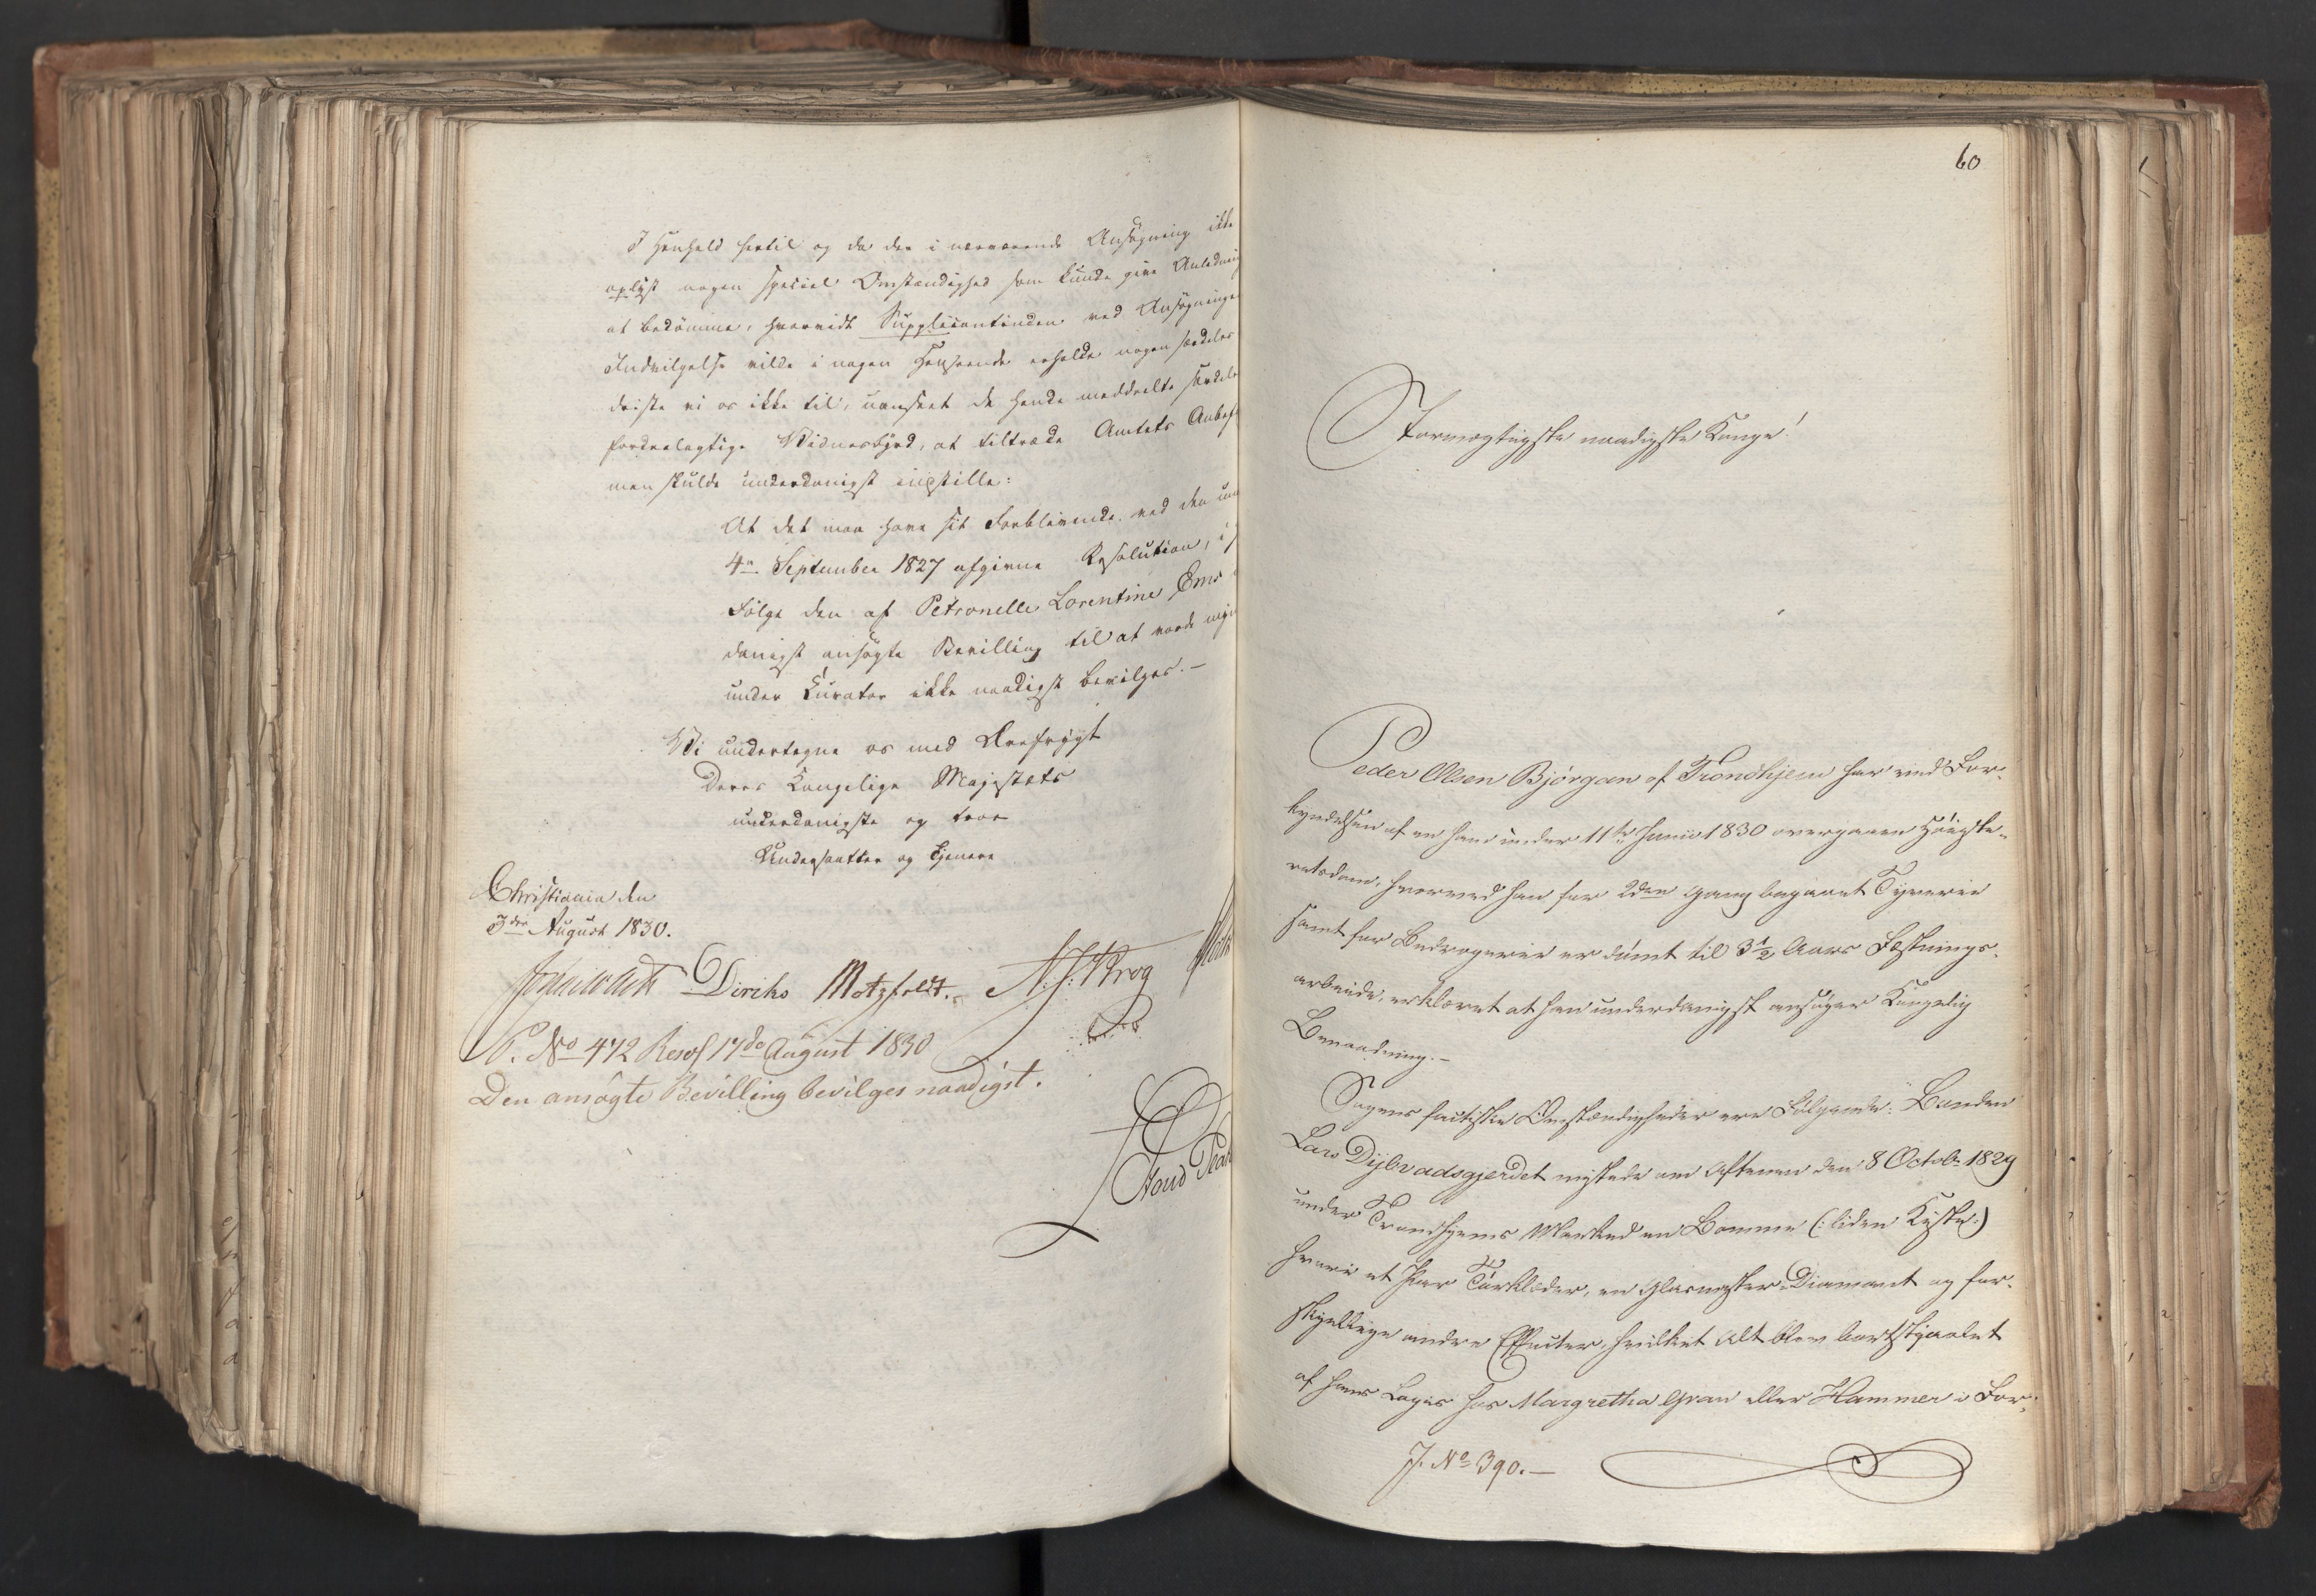 I Henhold hertil og da der i nærværende Ansøgning ikke
oplyst nogen speciel Omstændighed som kunde give Anledning
at bedømme, hvorvidt Supplicantinden ved Ansøgningens
Indvilgelse vilde i nogen Henseende erholde nogen særdeles
driste vi os ikke til, uanseet de hende meddeelte særdeles
fordeelagtige Vidnesbyrd, at tiltræde Amtets Anbef
men skulde underdanigst indstille:
At det maa have sit Forblivende ved den un
4de September 1827 afgivne Resolution, i
Følge den af Petronelle Lorentine Ems
danigst ansøgte Bevilling til at vorde myn
under Curator ikke naadigst bevilges.—
Vi undertegne os med Ærefrygt
Deres Kongelige Majestæts
underdanigste og troe
Undersaatter og Tjenere
Christiania den
3die August 1830.
Diriks Motzfeldt. N. J. Krog
P. No 472 Resol 17de August 1830
Den ansøgte Bevilling bevilges naadigst.
60
Stormægtigste naadigste Konge!
Peder Olsen Bjørgan af Trondhjem har ved For-
kyndelsen af en ham under 11te Junii 1830 overgaaen Høieste-
retsdom, hvorved han for 2den Gang begaaet Tyverie
samt for Bedragerie er dømt til 3 1/2 Aars Fæstnings-
arbeide, erklæret at han underdanigst ansøger Kongelig
Benaadning.—
Sagens factiske Omstændigheder ere Følgende: Bonden
Lars Dybvadsgjerdet mistede om Aftenen den 8 Octobr 1829
under Trondhjems Marked en Bomme (: liden Kiste:)
hvori et Par Tørklæder, en Glarmester-Diamant og for-
skjellige andre Effecter, hvilket Alt blev bortstjaalet
af hans Logis hos Margretha Gran eller Hammer i For-
J. No 390.—